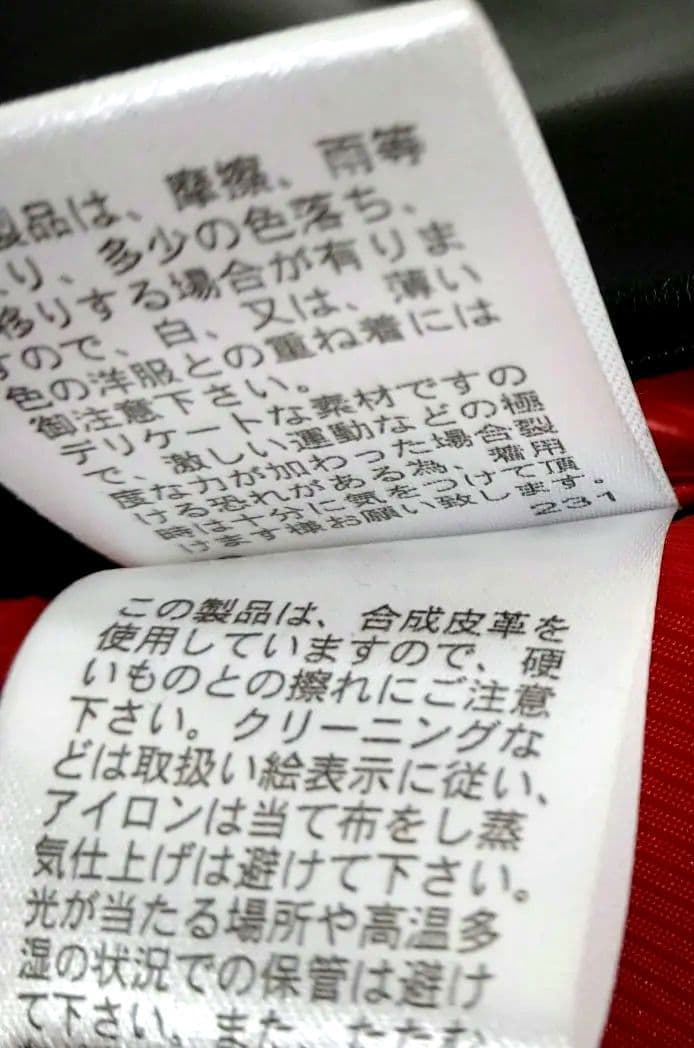 製品は、摩擦、雨等
より、多少の色落ち、
移りする場合が有りま
すので、白、又は、薄い
色の洋服との重ね着には
御注意下さい。
デリケートな素材ですの
で、激しい運動などの極
度な力が加わった場合裂
ける恐れがある為、着用
時は十分に気をつけて頂
けます様お願い致します。
231
この製品は、合成皮革を
使用していますので、硬
いものとの擦れにご注意
下さい。クリーニングな
どは取扱い絵表示に従い、
アイロンは当て布をし蒸
気仕上げは避けて下さい。
光が当たる場所や高温多
湿の状況での保管は避け
て下さい。また、たたむ